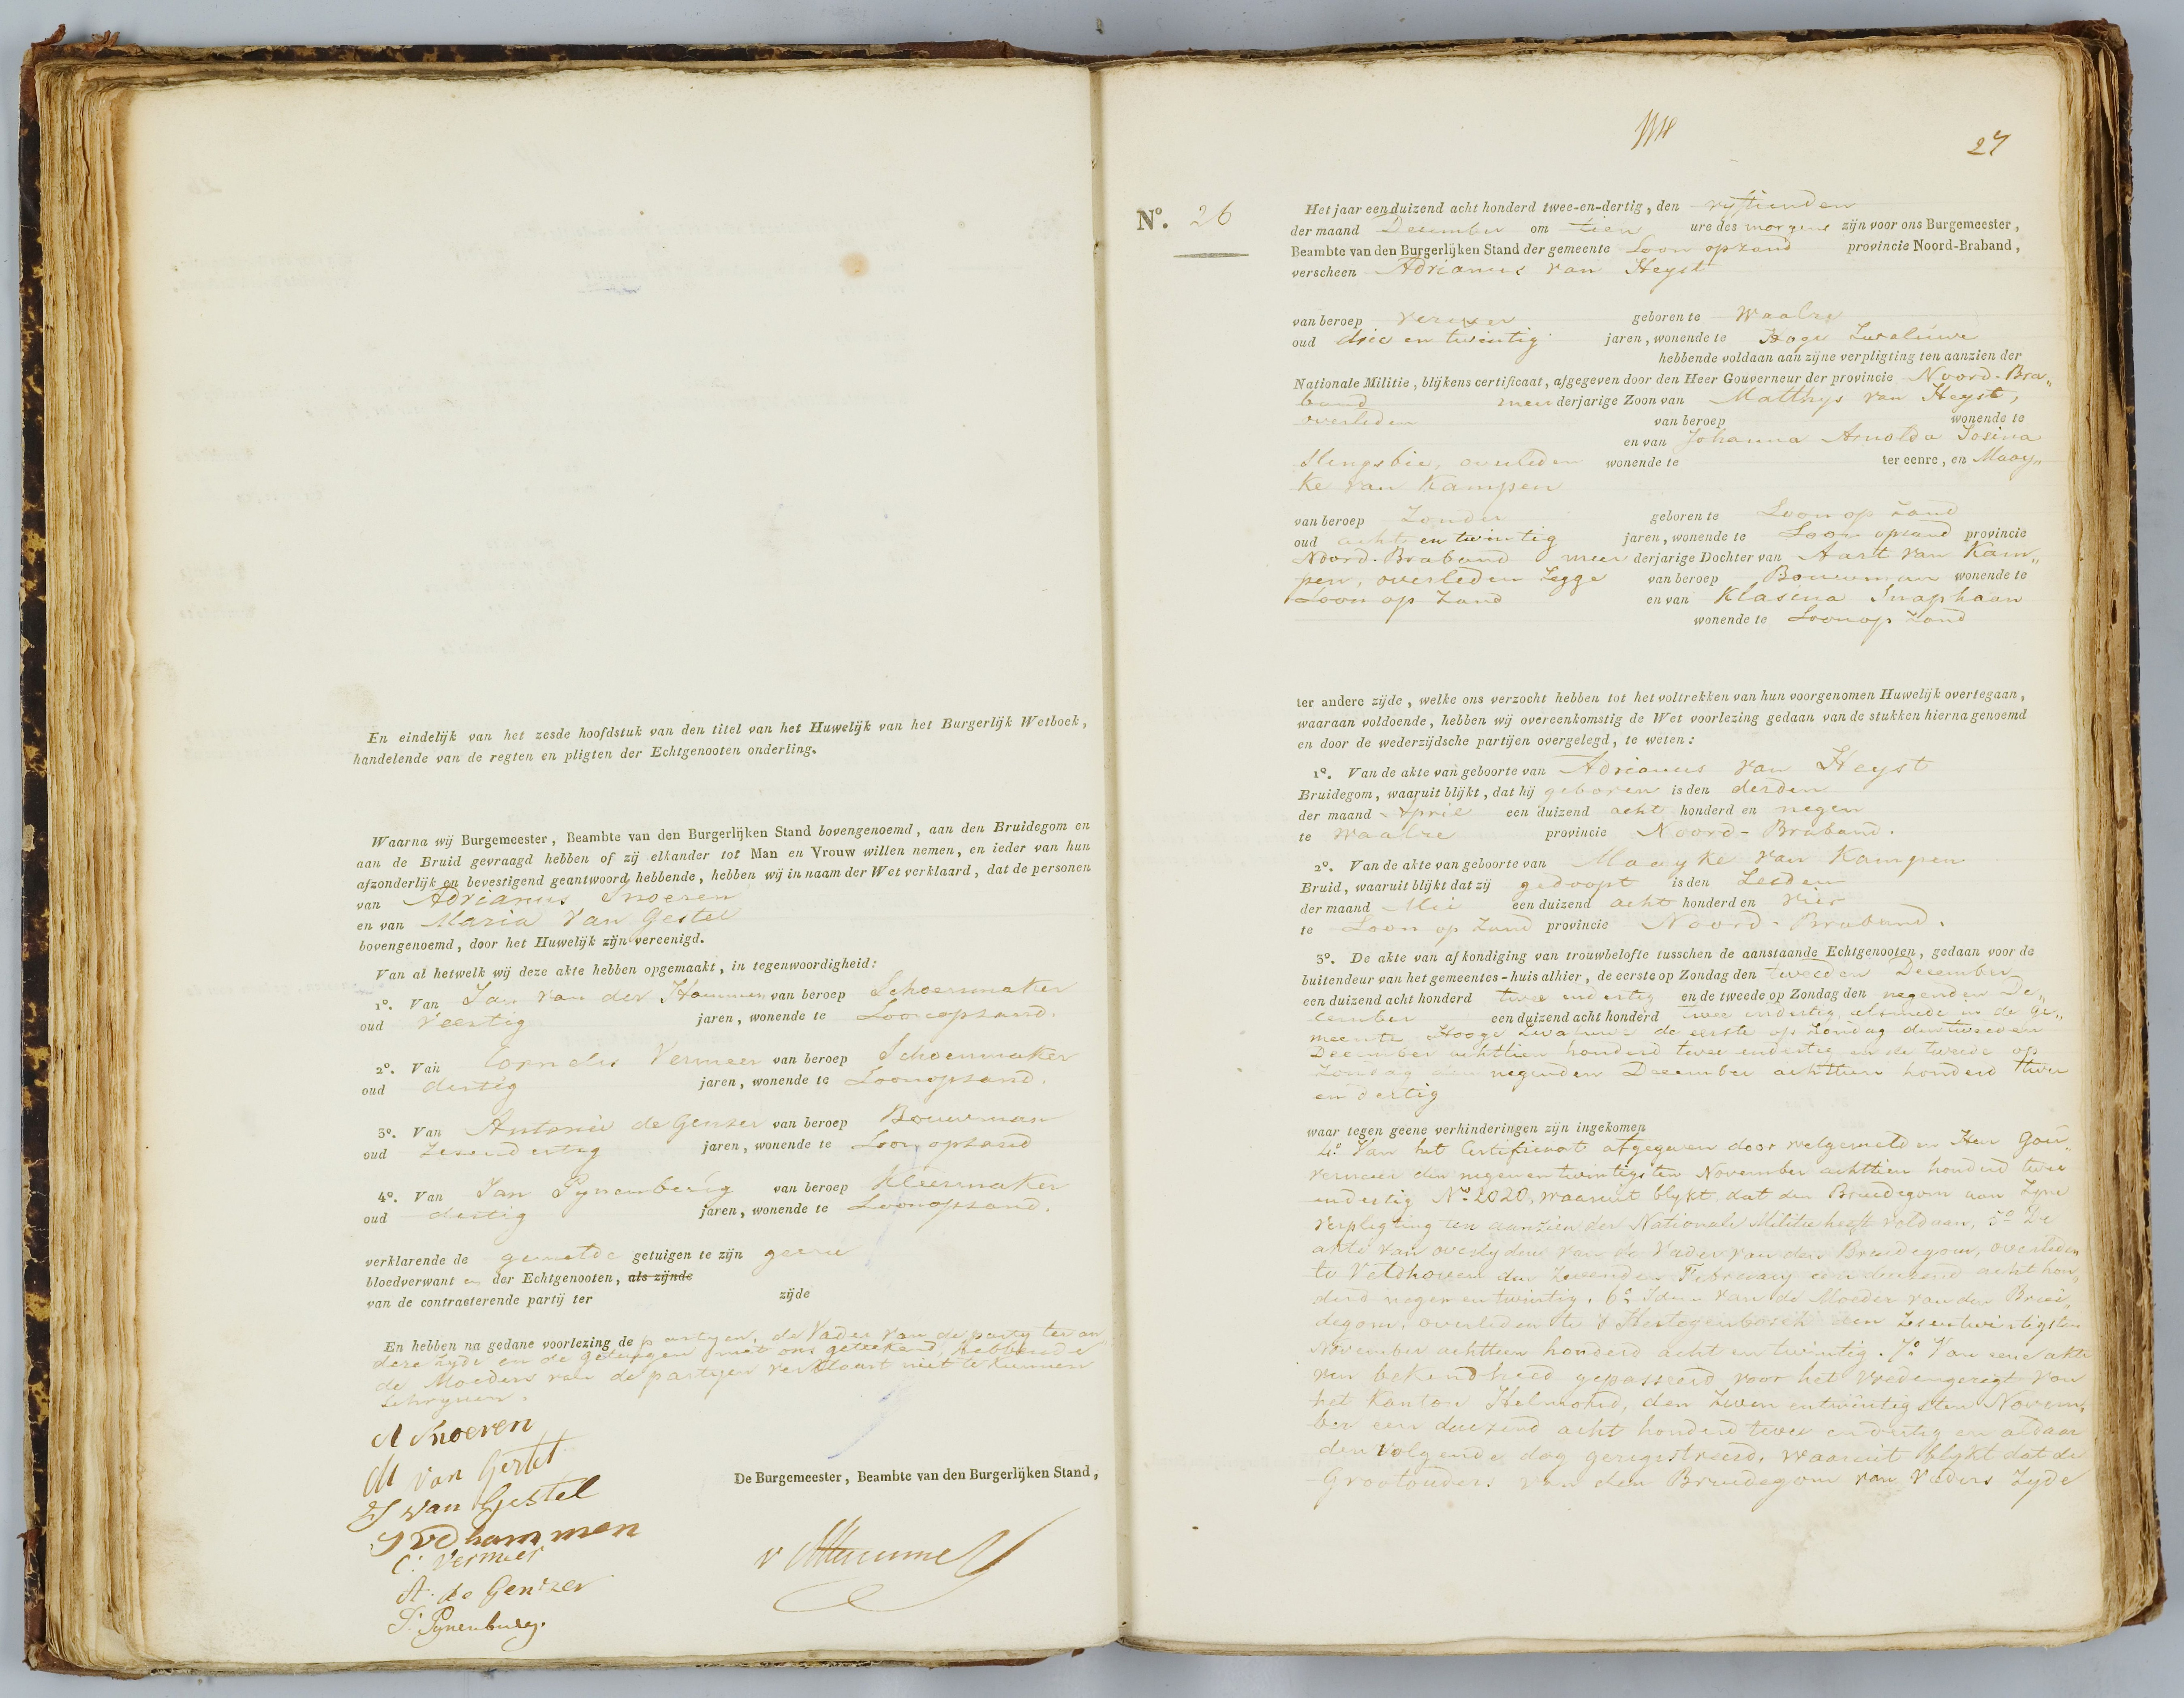 En eindelijk van het zesde hoofdstuk van den titel van het Huwelijk van het Burgerlijk Wetboek,
handelende van de regten en pligten der Echtgenooten onderling.
Waarna wij Burgemeester, Beambte van den Burgerlijken Stand bovengenoemd, aan den Bruidegom en
aan de Bruid gevraagd hebben of zij elkander tot Man en Vrouw willen nemen, en ieder van hun
afzonderlijk en bevestigend geantwoord hebbende, hebben wij in naam der Wet verklaard, dat de personen
van Adrianus Snoeren
en van Maria van Gestel
bovengenoemd, door het Huwelijk zijn vereenigd.
Van al hetwelk wij deze akte hebben opgemaakt, in tegenwoordigheid:
1º. Van Jan van der Hammen van beroep Schoenmaker
oud veertig jaren, wonende te Loonopzand.
2º. Van Cornelis Vermeer van beroep Schoenmaker
oud dertig jaren, wonende te Loonopzand.
3º. Van Antonie de Genser van beroep Bouwman
oud zesendertig jaren, wonende te Loonopzand
4º. Van Jan Pynenburg van beroep Kleermaker
oud dertig jaren, wonende te Loonopzand.
verklarende de gemelde getuigen te zijn geene
bloedverwant en der Echtgenooten, als zijnde
van de contracterende partij ter zijde
En hebben na gedane voorlezing de partyen, de Vader van de party ter an
dere zyde en de getuigen met ons geteekend, hebbende
de Moeders van de partyen verklaart niet te kunnen
schryven.
A Snoeren
M van Gestel
van Gestel
J v d hammen
C. Vermeer
A. de Genser
J. Pynenburg.
De Burgemeester, Beambte van den Burgerlijken Stand,
27
Nº. 26
Het jaar een duizend acht honderd twee-en-dertig, den vyftienden
der maand December om tien ure des morgens zijn voor ons Burgemeester,
Beambte van den Burgerlijken Stand der gemeente Loon opzand provincie Noord-Braband,
verscheen Adrianus van Heyst
van beroep verwer geboren te Waalre
oud drie en twintig jaren, wonende te Hoge Zwaluwe
hebbende voldaan aan zijne verpligting ten aanzien der
Nationale Militie, blijkens certificaat, afgegeven door den Heer Gouverneur der provincie Noord-Bra„
band meerderjarige Zoon van Matthys van Heyst,
overleden van beroep wonende te
en van Johanna Arnolda Josina
Slengsbie, overleden wonende te ter eenre, en Maay„
ke van Kampen
van beroep Zonder geboren te Loon op Zand
oud acht en twintig jaren, wonende te Loon opzand provincie
Noord-Braband meerderjarige Dochter van Aart van Kam„
pen, overleden Zegge van beroep Bouwman wonende te
Loon op Zand en van Klasina Snaphaan
wonende te Loonop Zand
ter andere zijde, welke ons verzocht hebben tot het voltrekken van hun voorgenomen Huwelijk overtegaan,
waaraan voldoende, hebben wij overeenkomstig de Wet voorlezing gedaan van de stukken hierna genoemd
en door de wederzijdsche partijen overgelegd, te weten:
1º. Van de akte van geboorte van Adrianus van Heyst
Bruidegom, waaruit blijkt, dat hij geboren is den derden
der maand April een duizend acht honderd en negen
te Waalre provincie Noord-Braband.
2º. Van de akte van geboorte van Maayke van Kampen
Bruid, waaruit blijkt dat zij gedoopt is den Zesden
der maand Mei een duizend acht honderd en vier
te Loon op Zand provincie Noord-Braband.
3º. De akte van afkondiging van trouwbelofte tusschen de aanstaande Echtgenooten, gedaan voor de
buitendeur van het gemeentes-huis alhier, de eerste op Zondag den tweeden December
een duizend acht honderd twee endertig en de tweede op Zondag den negenden De„
cember een duizend acht honderd twee endertig, alsmede in de ge„
meente Hooge Zwaluwe de eerste op Zondag den tweeden
December achttien honderd twee endertig en de tweede op
Zondag den negenden December achttien honderd twee
en dertig
waar tegen geene verhinderingen zijn ingekomen
4º Van het Certificaat afgegeven door welgemelden Heer Gou„
verneur den negenentwintigsten November achttien honderd twee
endertig Nº 2020, waaruit blykt, dat den Bruidegom aan zyne
verpligting ten aanzien der Nationale Militie heeft voldaan, 5º De
akte van overlyden van de Vader van den Bruidegom, overleden
te Veldhoven den Zevenden February een duizend acht hon„
derd negen en twintig. 6º Idem van de Moeder van den Brui„
degom, overleden te s Hertogenbosch den Zesentwintigsten
November achttien honderd acht en twintig. 7º Van eene akte
van bekendheid gepasseerd voor het Vredengeregt van
het Kanton Helmond, den Zeven entwintigsten Novem„
ber een duizend acht honderd twee endertig en aldaar
den volgende dag geregistreerd, waaruit blykt dat de
Grootouders van den Bruidegom van Vaders Zyde